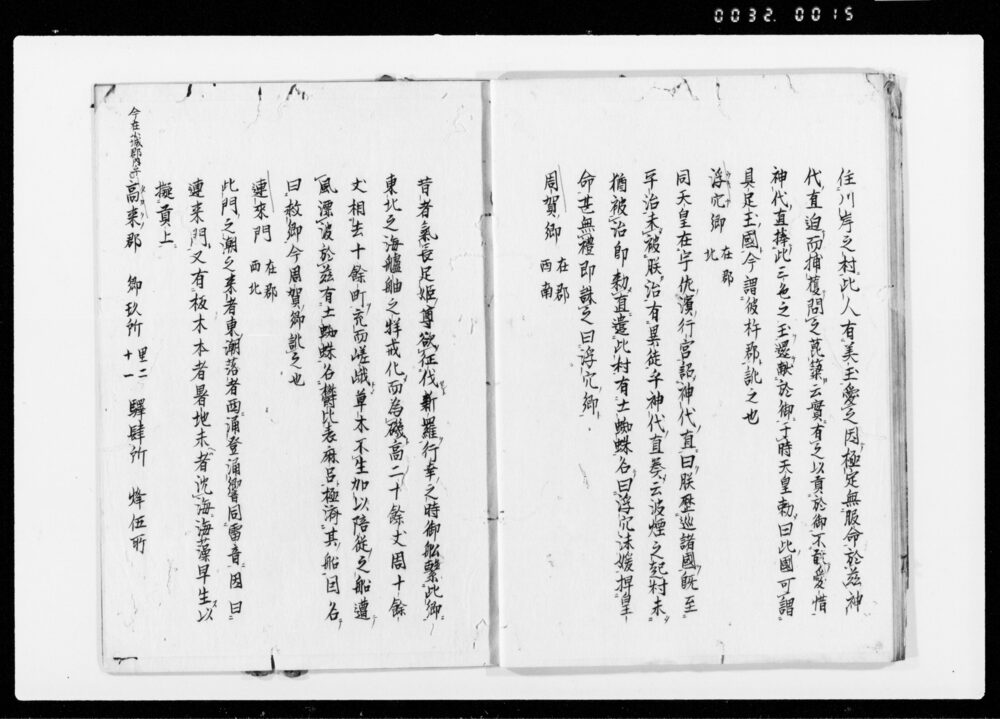 0032.0015
住川岸之村此人有美玉愛之因極定無服命於茲神
代直迫而捕獲問之箆簗云實有之以貢於御不敢愛惜
神代直捧此三色之玉還献於御于時天皇勅曰此國可謂
具足玉國今謂彼杵郡訛之也
浮穴郷 在郡北
同天皇在宇佐濱行宮詔神代直曰朕歴巡諸國既至
平治未被朕治有異徒乎神代直奏云波煙之起村未
猶被治即勅直遣此村有土蜘蛛名曰浮穴沫媛捍皇
命甚無禮即誅之曰浮穴郷
周賀郷 在郡西南
昔者氣長足姫尊欲征伐新羅行幸之時御舩繋此郷
東北之海艫舳之牂戒化而為磯高二十餘丈周十餘
丈相去十餘町充而嵯峨草木不生加以陪従之船遭
風漂波於茲有土蜘蛛名欝比表麻呂極済其船因名
曰救郷今周賀郷訛之也
速來門 在郡西北
此門之潮之来者東潮落者西涌登涌響同雷音因曰
速来門又有板木本者暑地末者沈海海藻早生以
擬貢上
高来郡 郷玖所 里二十一 驛肆所 烽伍所